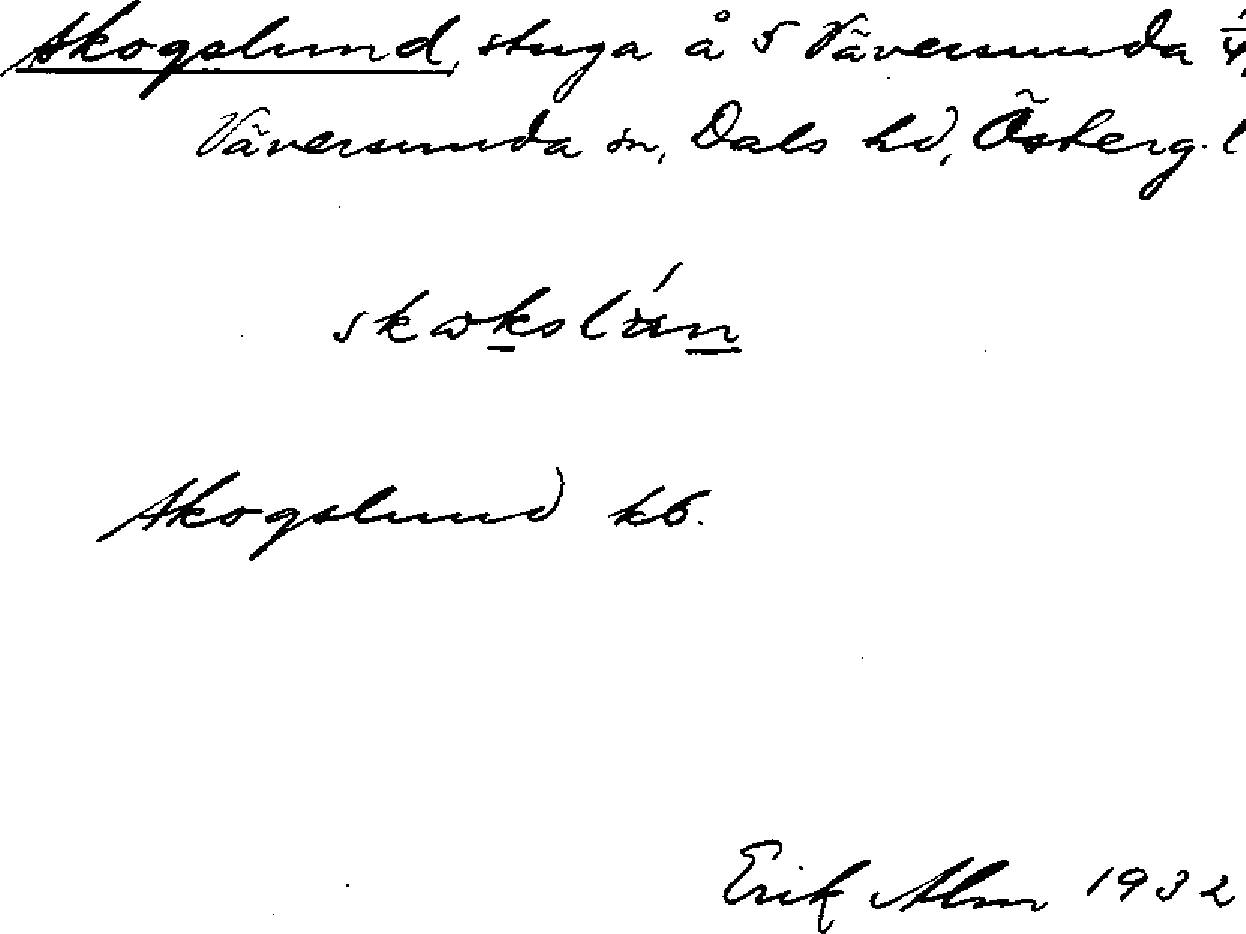 Skogslund, stuga å 5 Väversunda 1/4,
Väversunda sn, Dals hd, Österg. l
Skogslund kb.
Erik Alm 1932